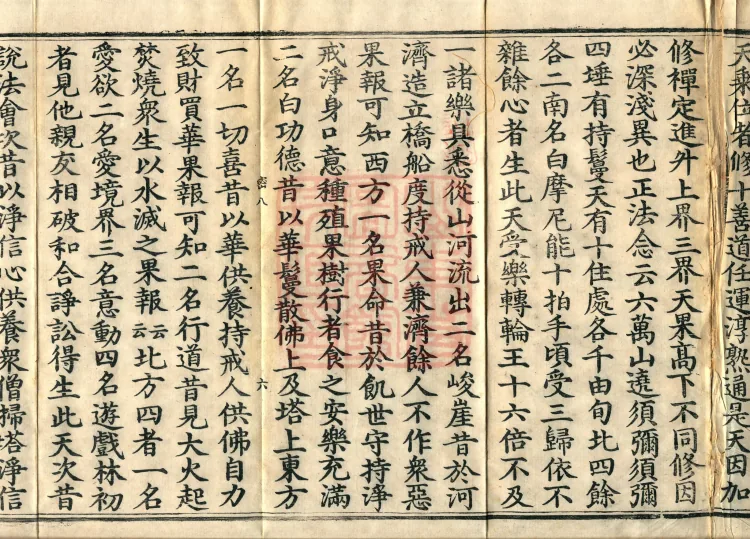 天乗任者修十善道任運淳熟通是天因加
修禪定進升上界三界天果髙下不同修因
必深淺異也正法念云六萬山遶須彌須彌
四埵有持鬘天有十住處各千由旬北四餘
各二南名白摩尼能十拍手頃受三歸依不
雜餘心者生此天受樂轉輪王十六倍不及
一諸樂具悉從山河流出二名峻崖昔於河
濟造立橋船度持戒人兼濟餘人不作衆惡
果報可知西方一名果命昔於飢世守持淨
戒淨身口意種殖果樹行者食之安樂充滿
二名白功德昔以華鬘散佛上及塔上東方
密八 六
一名一切喜昔以華供養持戒人供佛自力
致財買華果報可知二名行道昔見大火起
焚燒衆生以水滅之果報云云北方四者一名
愛欲二名愛境界三名意動四名遊戲林初
者見他親友相破和合諍訟得生此天次昔
說法會次昔以淨信心供養衆僧掃塔淨信